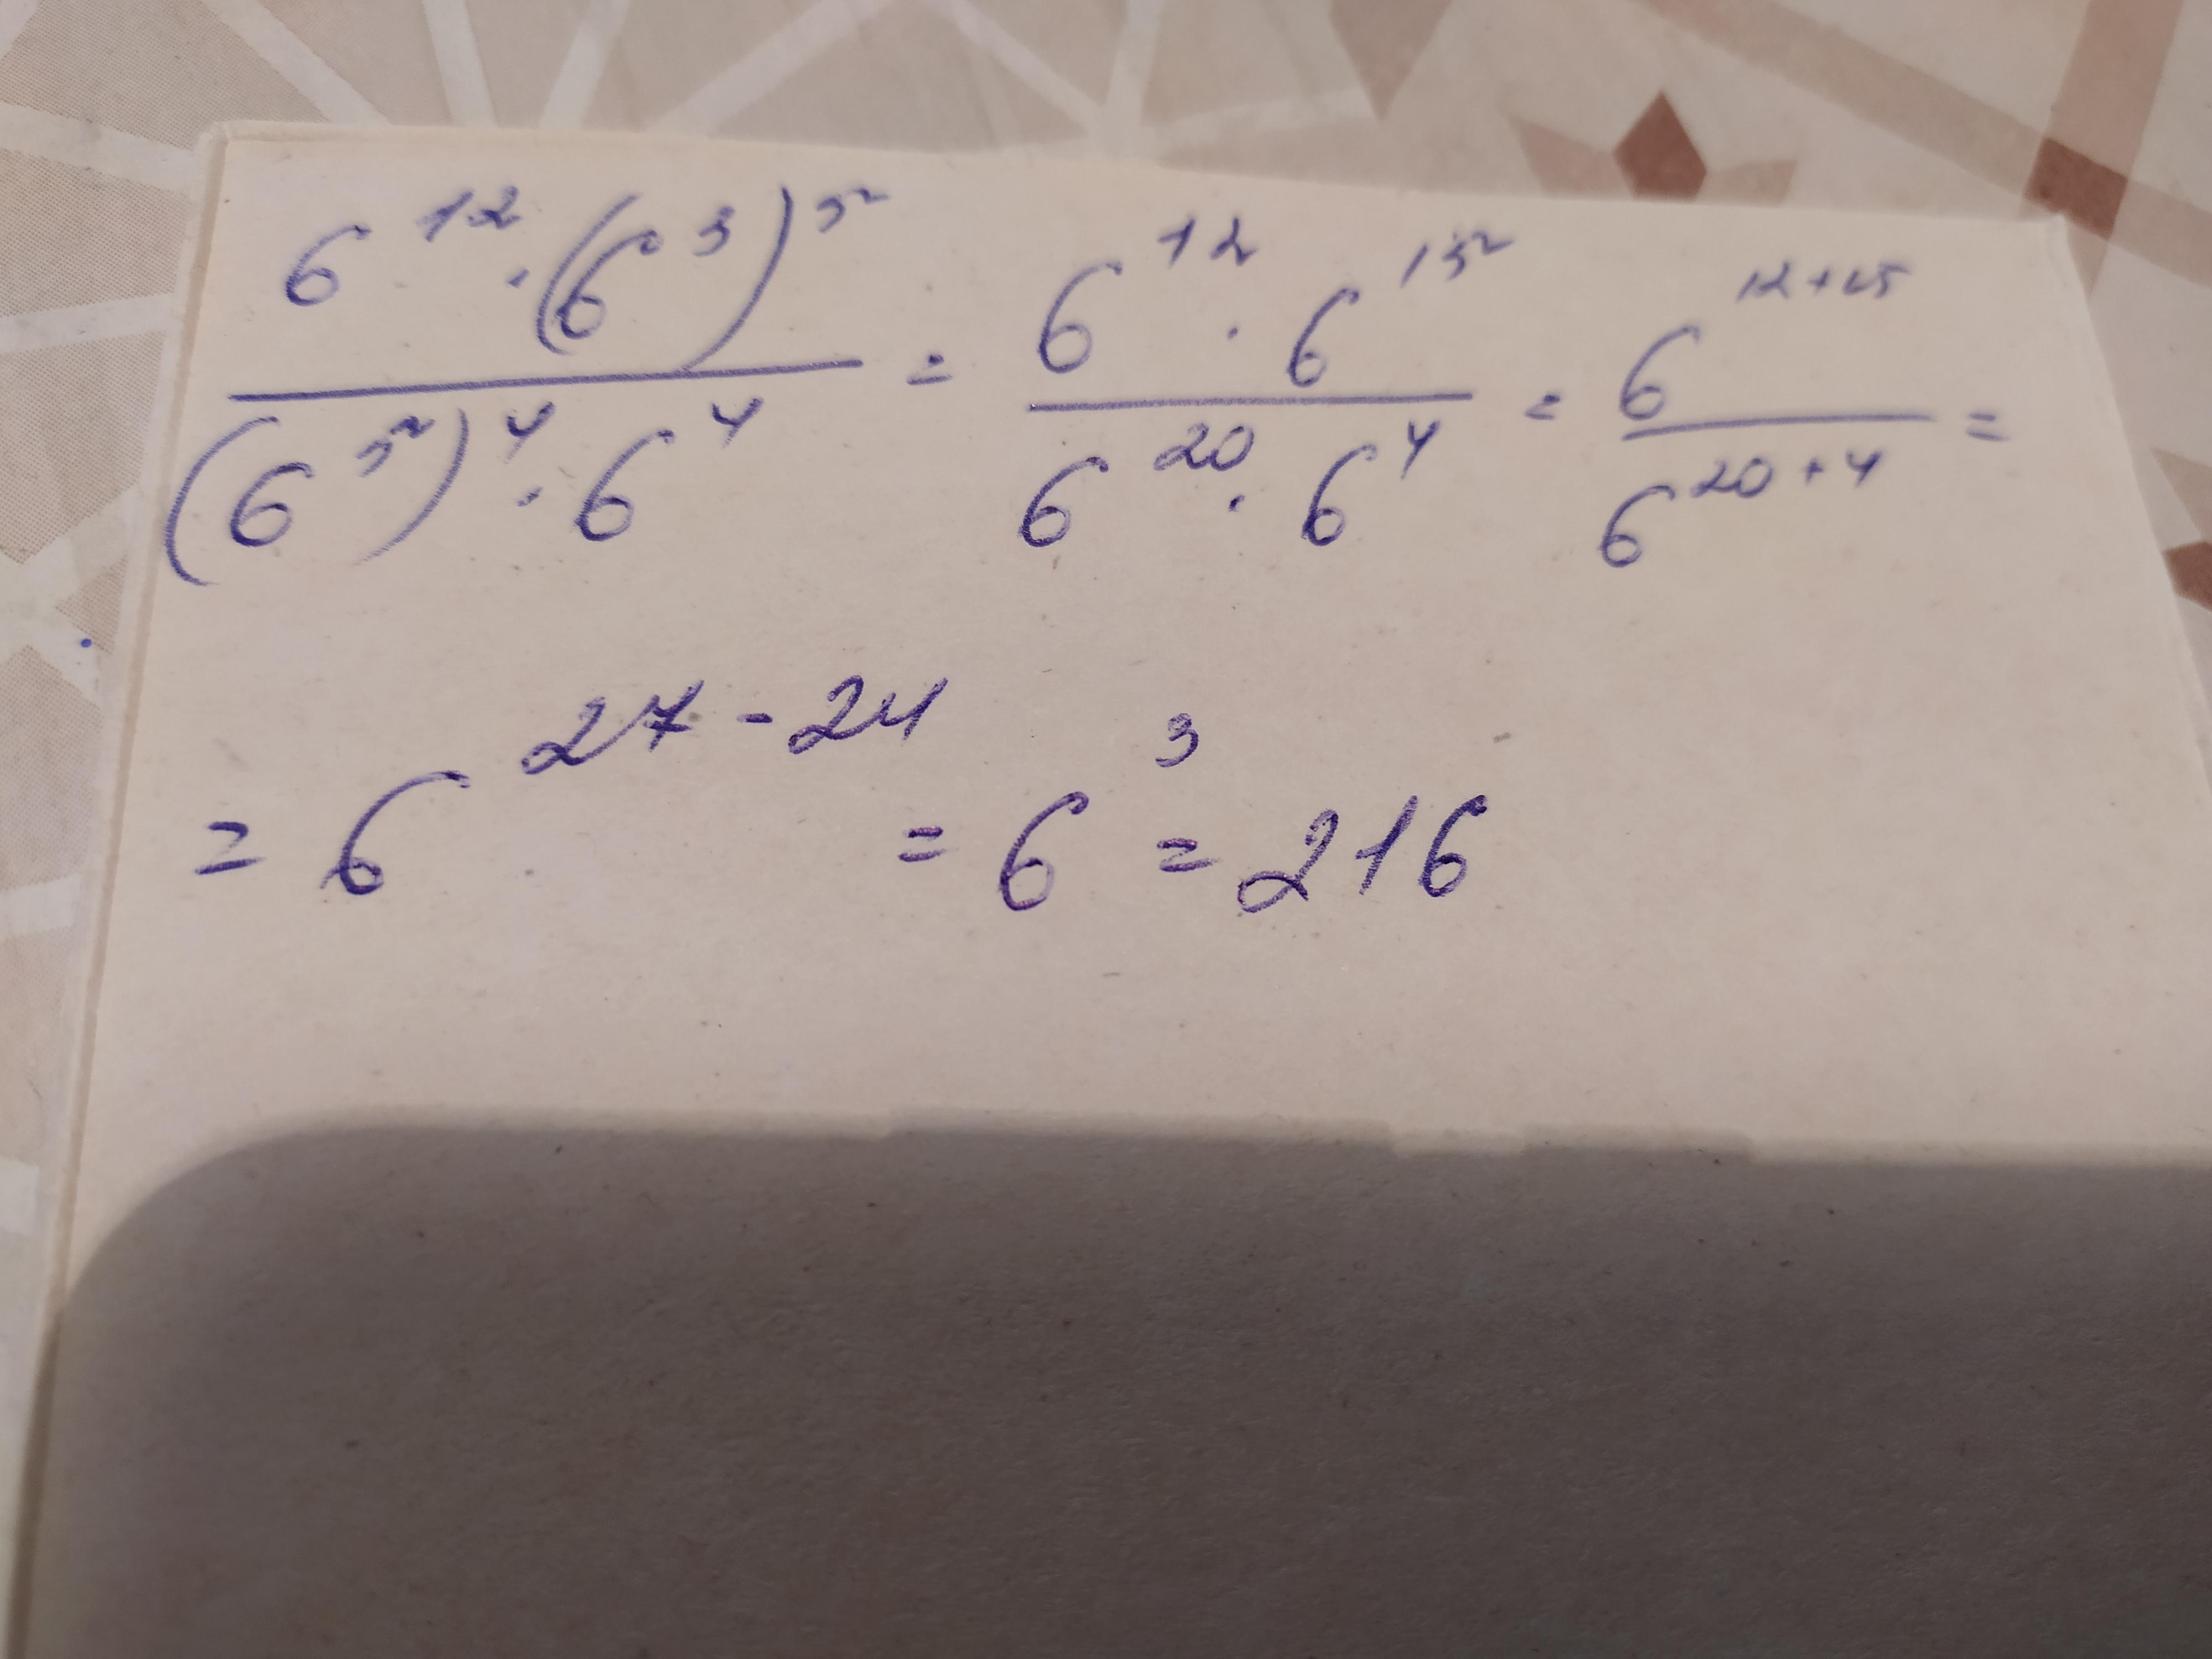 \frac{6^{12} \cdot (6^3)^5}{(6^5)^4 \cdot 6^4} = \frac{6^{12} \cdot 6^{15}}{6^{20} \cdot 6^4} = \frac{6^{12+15}}{6^{20+4}} =
= 6^{27-24} = 6^3 = 216